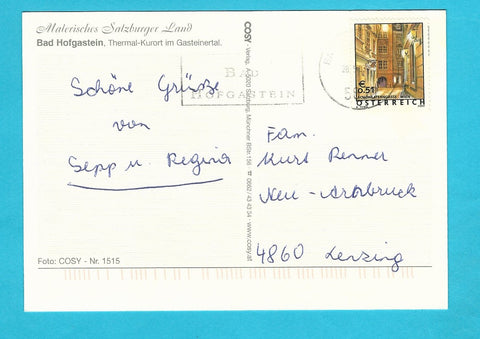 Malerisches Salzburger Land
Bad Hofgastein, Thermal-Kurort im Gasteinertal.
Schöne Grüße
von
Sepp u. Regina
Foto: COSY - Nr. 1515
COSY - Verlag, A-5020 Salzburg, Münchner BStr. 156 ☎ 0662 43 43 54 · www.cosy.at
BAD
HOFGASTEIN
€ 0,51
ÖSTERREICH
Fam.
Kurt Renner
4860 Lenzing